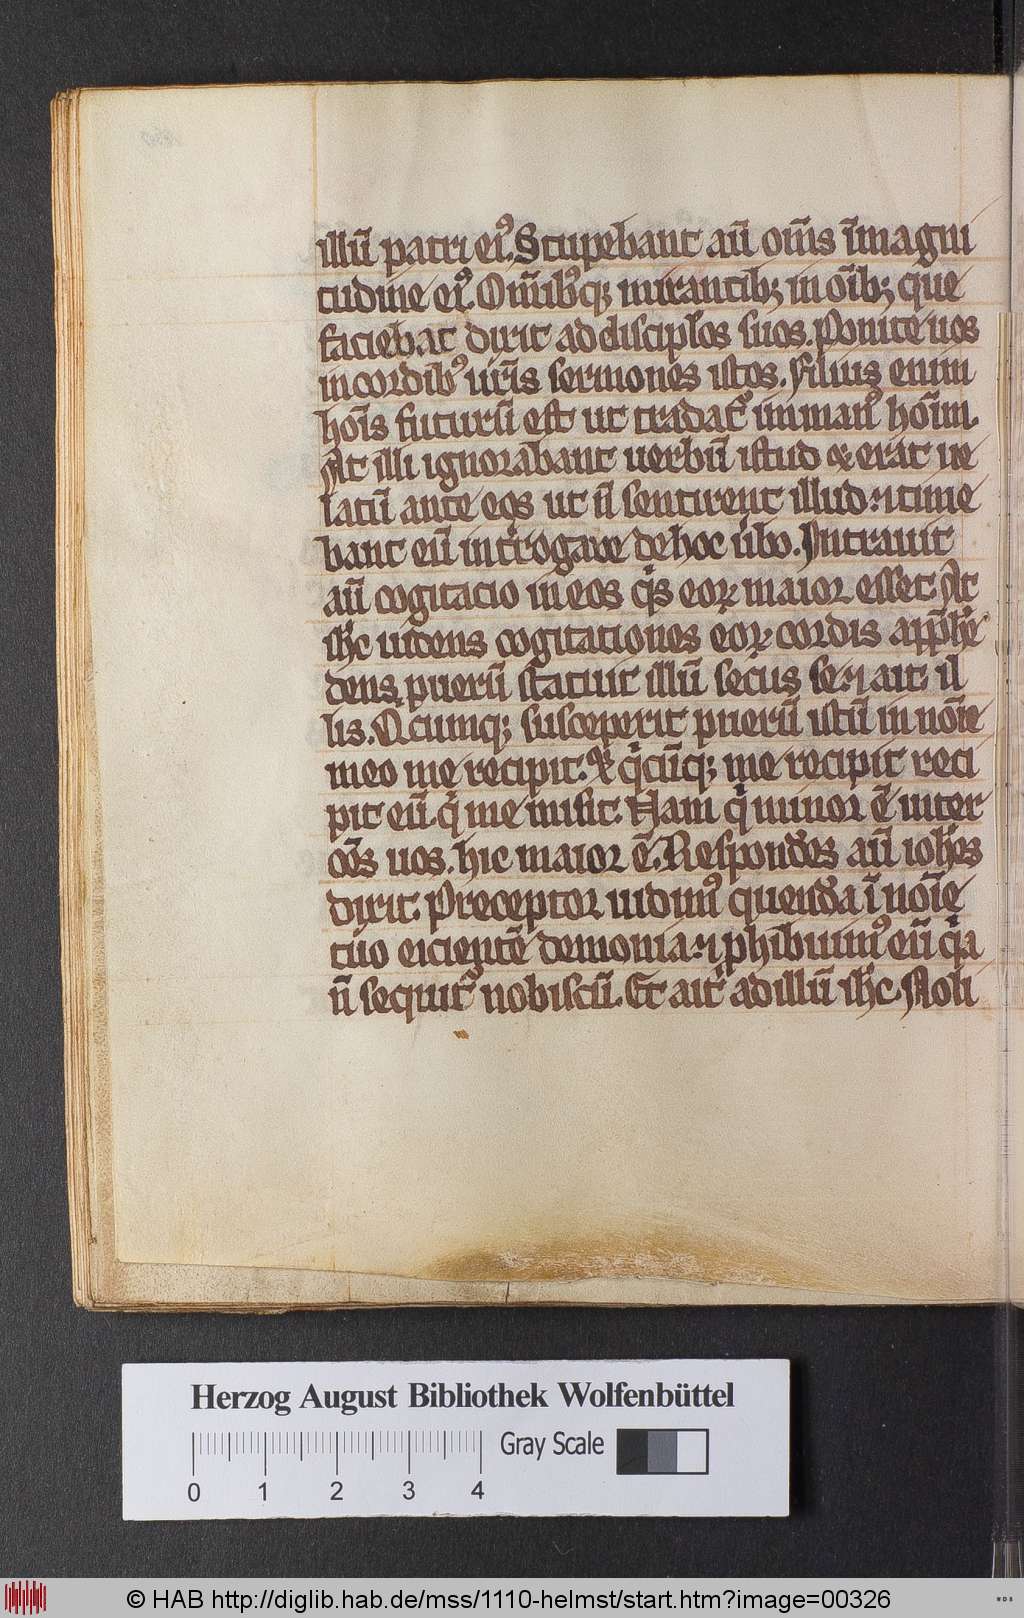 illū patri ei⁹. Stupebant aū om̄s ī magni
tudine ei⁹. Om̄ib⁹q; mirantib; in oīb; que
faciebat dixit ad discip̄los suos. Ponite uos
in cordib⁹ ur̄is sermones istos. Filius enim
hoīs futurū est ut tradat᷑ in man⁹ hoīm.
At illi ignorabant uerbū istud & erat ue
latū ante eos ut n̄ sentirent illud ⁊ time
bant eū int̄rogare de hoc ūbo. Intrauit
aū cogitacio in eos qͥs eoꝝ maior esset. At
ih̄c uidens cogitationes eoꝝ cordis app̄he
dens puerū statuit illū secus se ⁊ ait il
lis. Qͥcumq; susceperit puerū istū in noīe
meo me recipit. & qͥcūq; me recipit reci
pit eū qͥ me misit. Nam qͥ minor ē inter
oēs uos. hic maior ē. Respondēs aū ioh̄es
dixit. Preceptor uidim⁹ quendā ī noīe
tuo eicientē demonia ⁊ phibuim⁹ eū qͥa
n̄ sequit᷑ nobiscū. Et ait ad illū ih̄c. Noli
Herzog August Bibliothek Wolfenbüttel
Gray Scale
0 1 2 3 4
© HAB http://diglib.hab.de/mss/1110-helmst/start.htm?image=00326